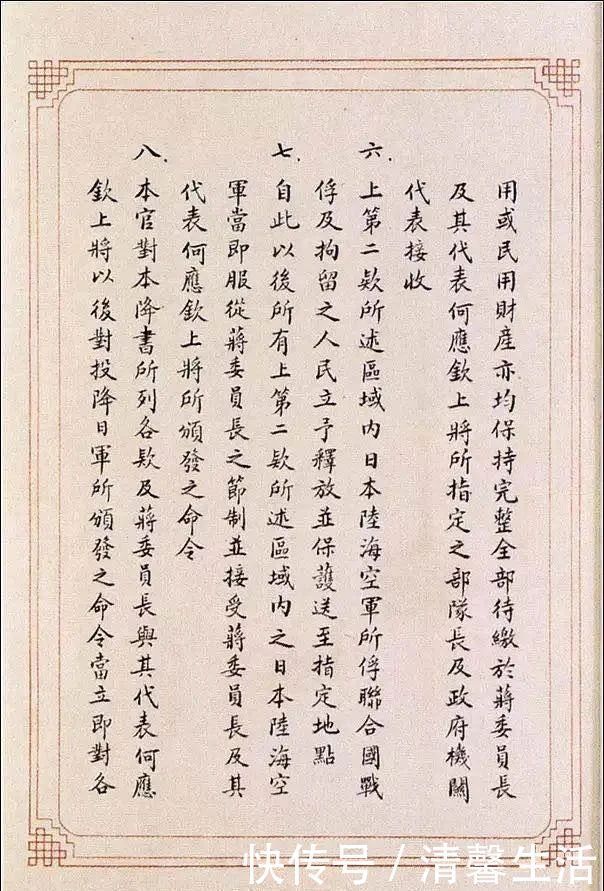 用或民用財產亦均保持完整全部待繳於蔣委員長
及其代表何應欽上將所指定之部隊長及政府機關
代表接收
六.上第二欵所述區域內日本陸海空軍所俘聯合國戰
俘及拘留之人民立予釋放並保護送至指定地點
七.自此以後所有上第二欵所述區域內之日本陸海空
軍當即服從蔣委員長之節制並接受蔣委員長及其
代表何應欽上將所頒發之命令
八.本官對本降書所列各欵及蔣委員長與其代表何應
欽上將以後對投降日軍所頒發之命令當立即對各
快传号／清馨生活